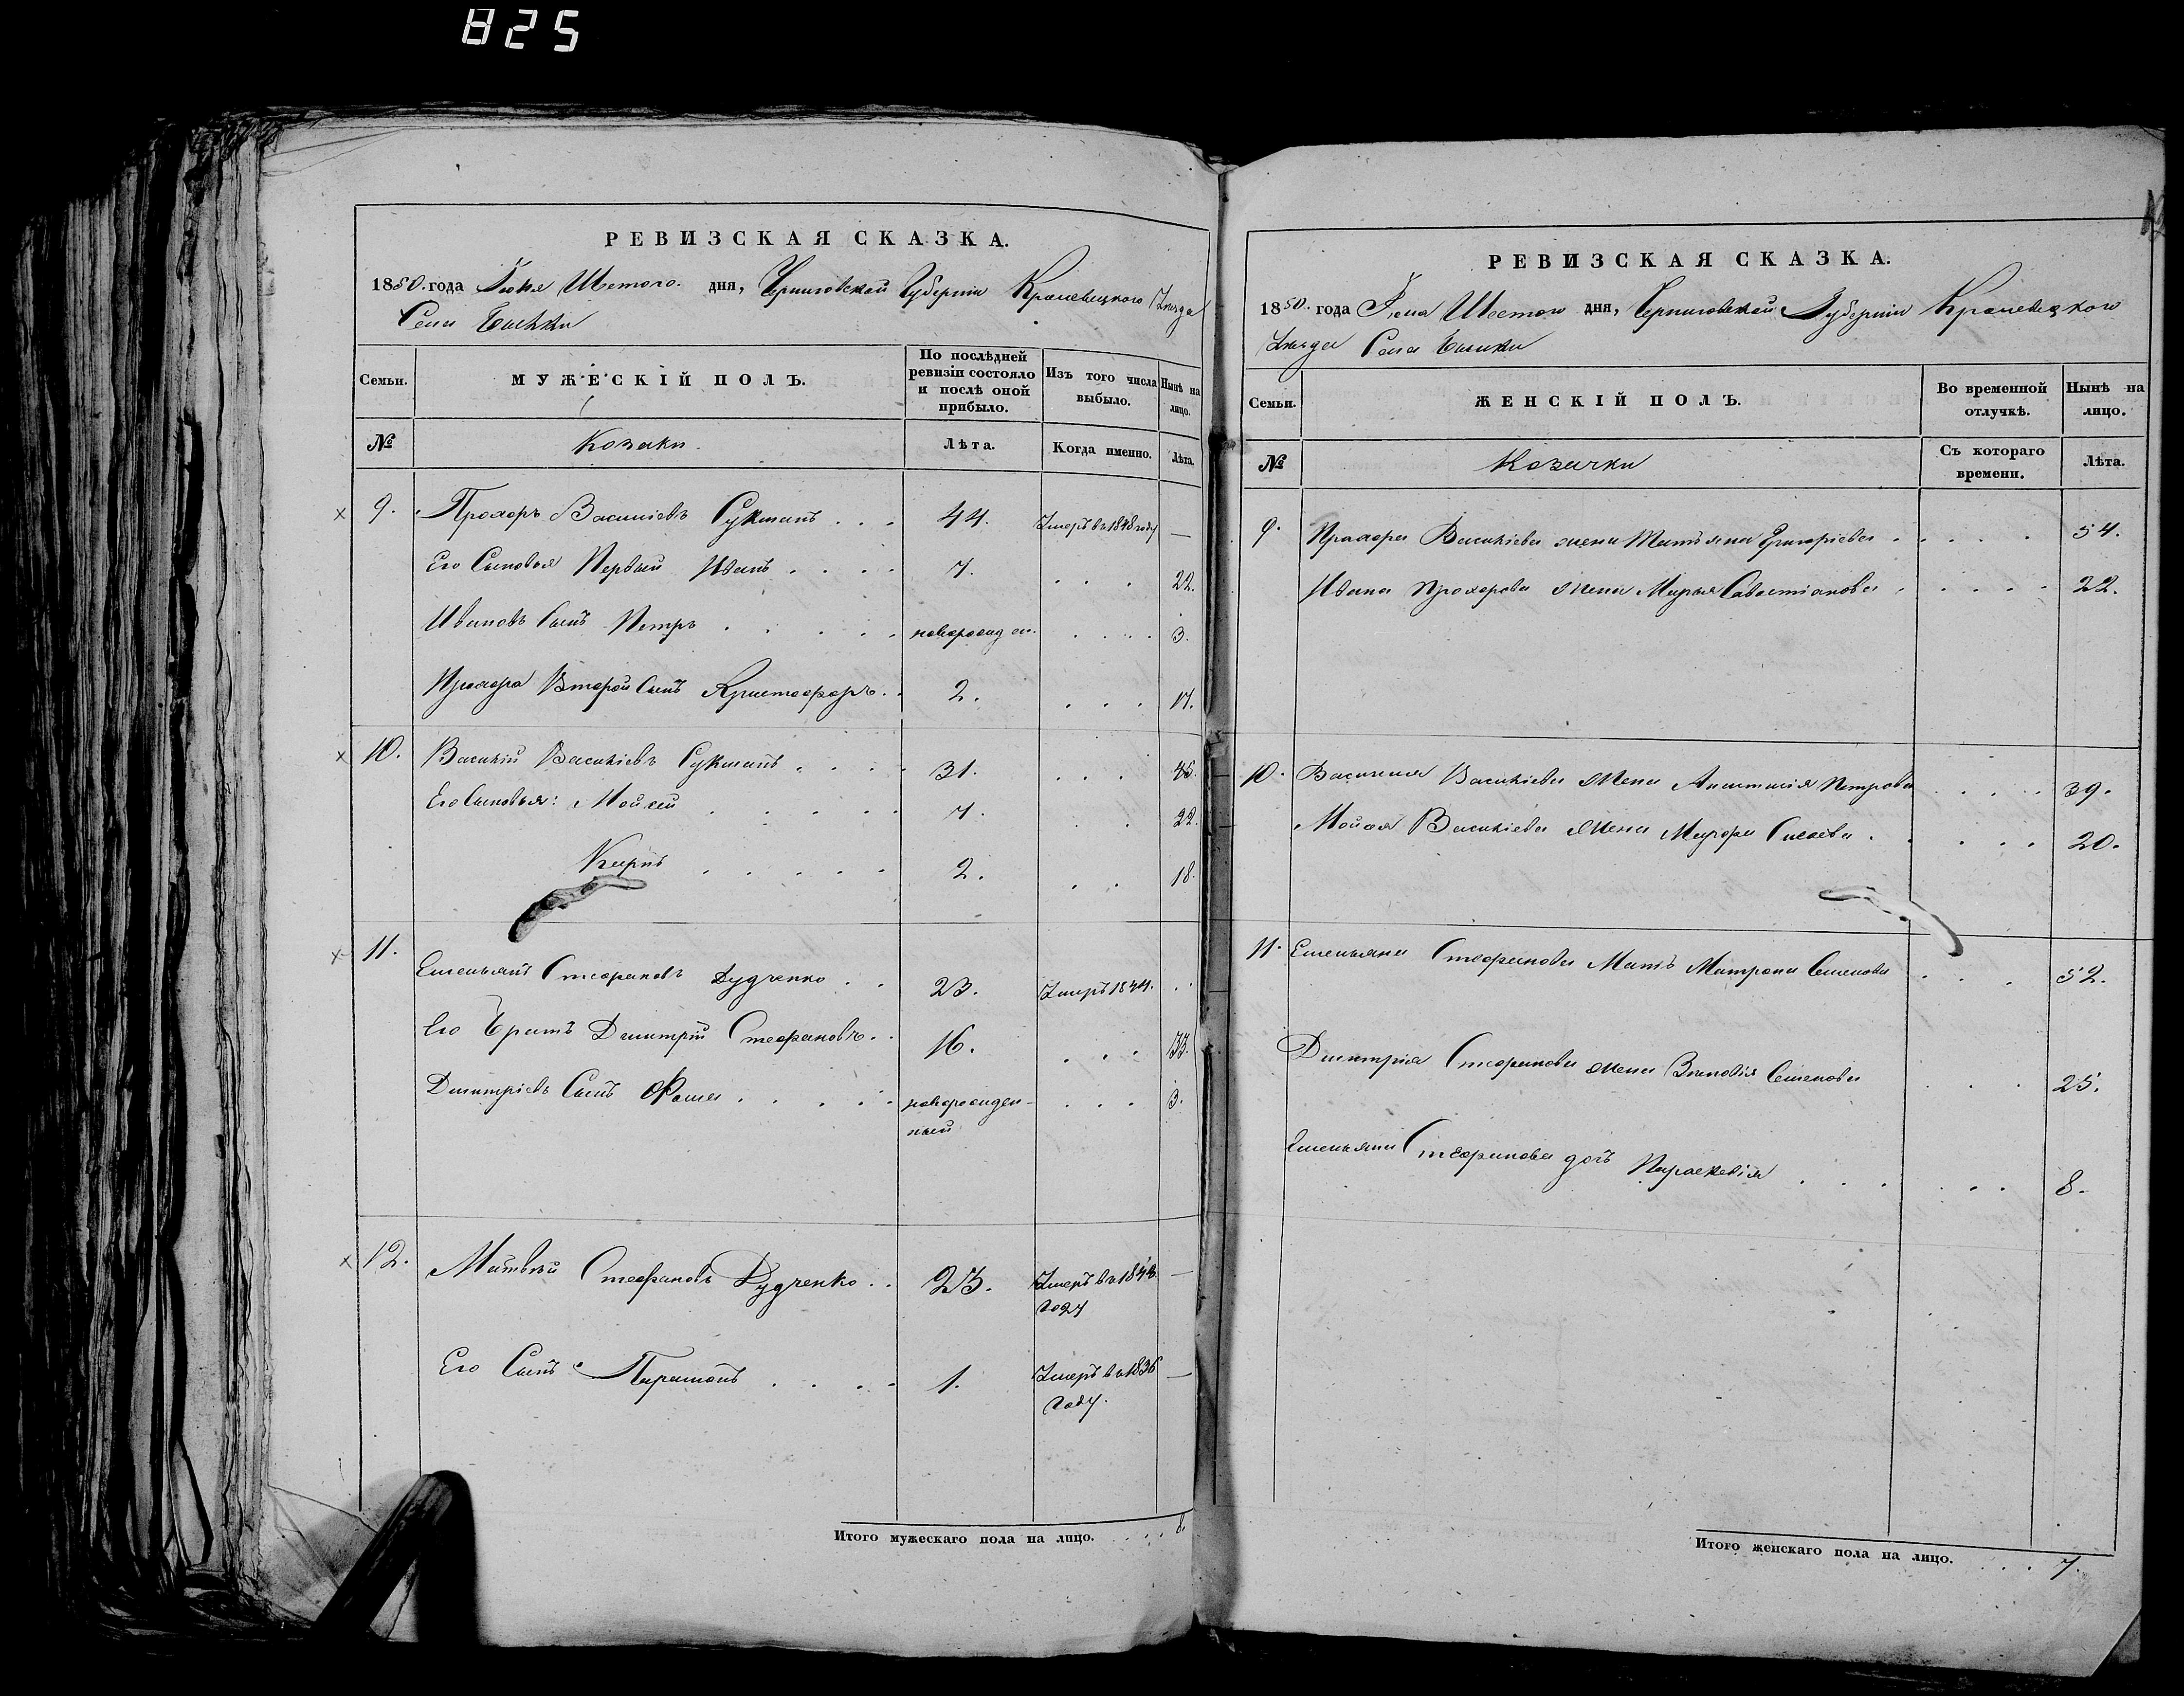 825
РЕВИЗСКАЯ СКАЗКА.
1850. года Шестого дня, Черниговской Губерніи Кролевецкого Уезда
Села
Семьи.
МУЖЕСКІЙ ПОЛЪ.
По послѣдней ревизіи состояло и послѣ оной прибыло.
Изъ того числа выбыло.
Нынѣ на лицо.
№
Козаки.
Лѣта.
Когда именно.
Лѣта.
9. Прохоръ Василіевъ . . . 44. Умеръ въ 1848 году —
Его Сыновья Первый Иванъ . . . . 7. . . . 22.
Ивановъ Сынъ Петръ . . . . . новорожден. . . . . 3.
Прохора Второй Сынъ Христофоръ . . 2. . . . 17.
10. Василій Василіевъ . . . . 31. . . . 45.
Его Сыновья: Мойсей . . . . . 7. . . 22.
Карпъ . . . . . 2. . . 18.
11. Емельянъ Стефановъ Дудченко . . 23. Умеръ 1844. . .
Его Братъ Дмитрій Стефановъ . . 16. . . . 33.
Дмитріевъ Сынъ Фома . . . . . новорожден- . . . 3.
ный
12. Матвѣй Стефановъ Дудченко . . 23. Умеръ въ —
году
Его Сынъ Парамонъ . . . . 1. Умеръ въ 1836 —
году.
Итого мужескаго пола на лицо. . . . 8.
РЕВИЗСКАЯ СКАЗКА.
1850. года Шестого дня, Черниговской Губерніи Кролевецкого
Уезда Села
Семьи.
ЖЕНСКІЙ ПОЛЪ.
Во временной отлучкѣ.
Нынѣ на лицо.
№
Козачки
Съ котораго времени.
Лѣта.
9. Прохора Василіева жена Татьяна Григоріева . . . . . 54.
Ивана Прохорова жена Марья Савостіанова . . . . . 22.
10. Василія Василіева жена Анастасія Петрова . . . . 39.
Мойсея Василіева жена жена . . . . . 20.
11. Емельяна Стефанова Мать Матрона Семенова . . . 52.
Дмитрія Стефанова жена Зиновія Семенова . . . 25.
Емельяна Стефанова дочь Параскевія . . . . . . 8.
Итого женскаго пола на лицо. . . . 7.